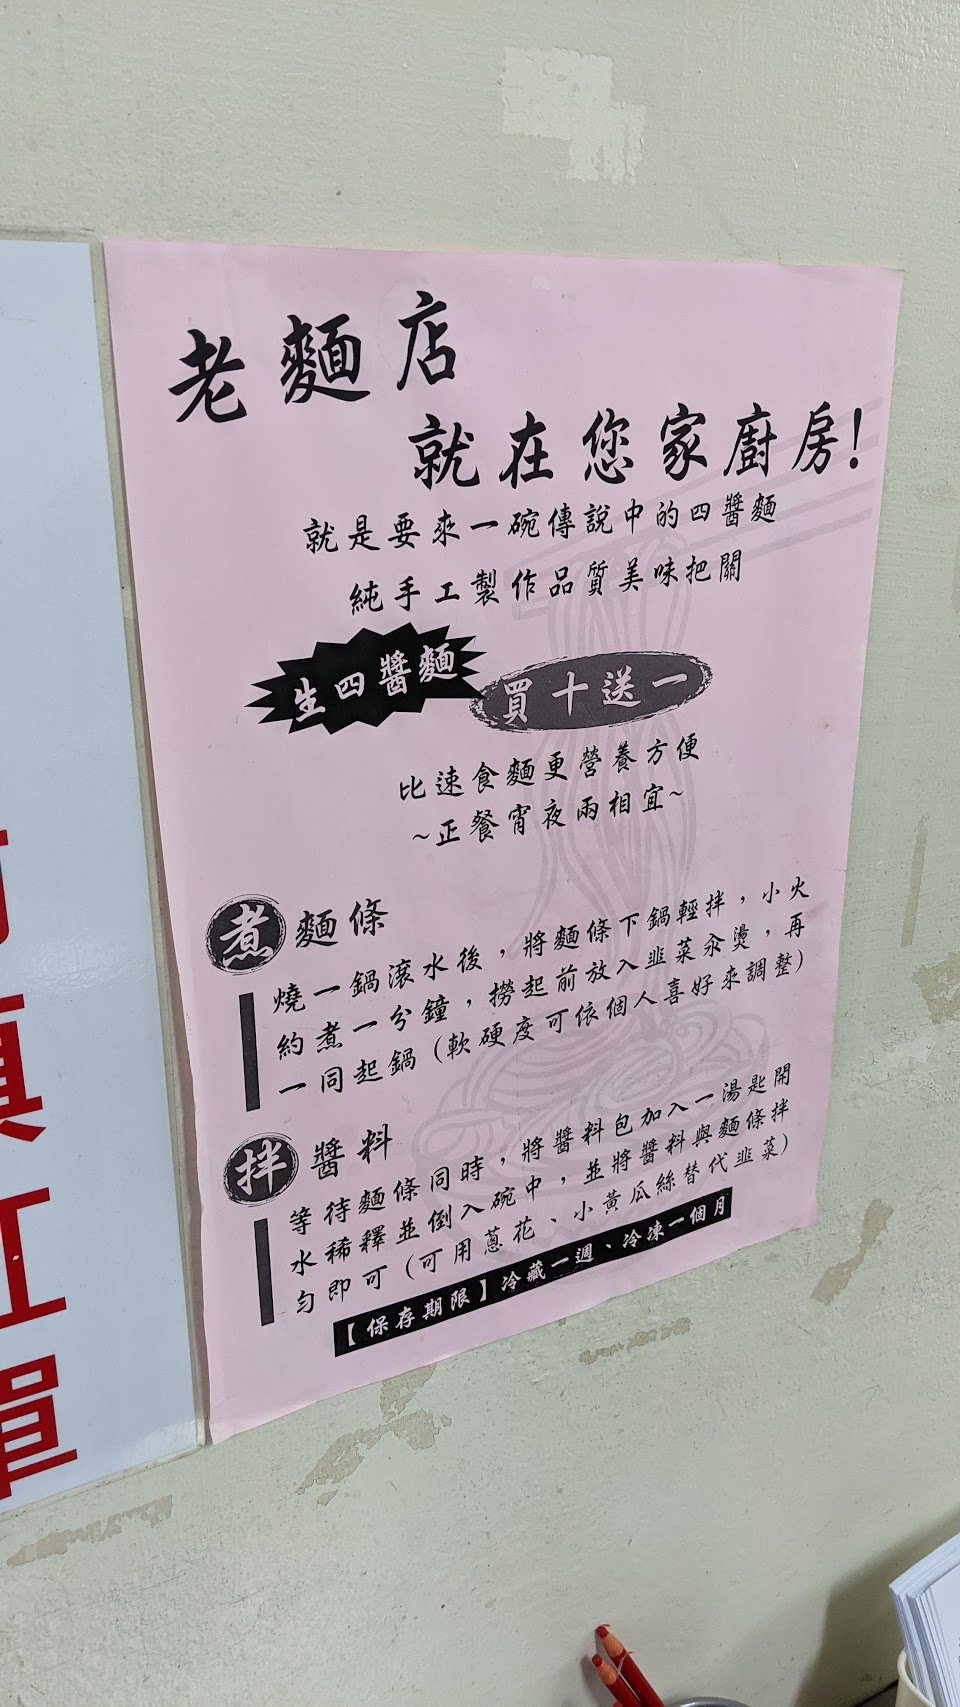 老麵店
就在您家廚房!
就是要來一碗傳說中的四醬麵
純手工製作品質美味把關
生四醬麵
買十送一
比速食麵更營養方便
~正餐宵夜兩相宜~
煮麵條
燒一鍋滾水後，將麵條下鍋輕拌，小火
約煮一分鐘，撈起前放入韭菜汆燙，再
一同起鍋（軟硬度可依個人喜好來調整）
拌醬料
等待麵條同時，將醬料包加入一湯匙開
水稀釋並倒入碗中，並將醬料與麵條拌
勻即可（可用蔥花、小黃瓜絲替代韭菜）
【保存期限】冷藏一週、冷凍一個月
單